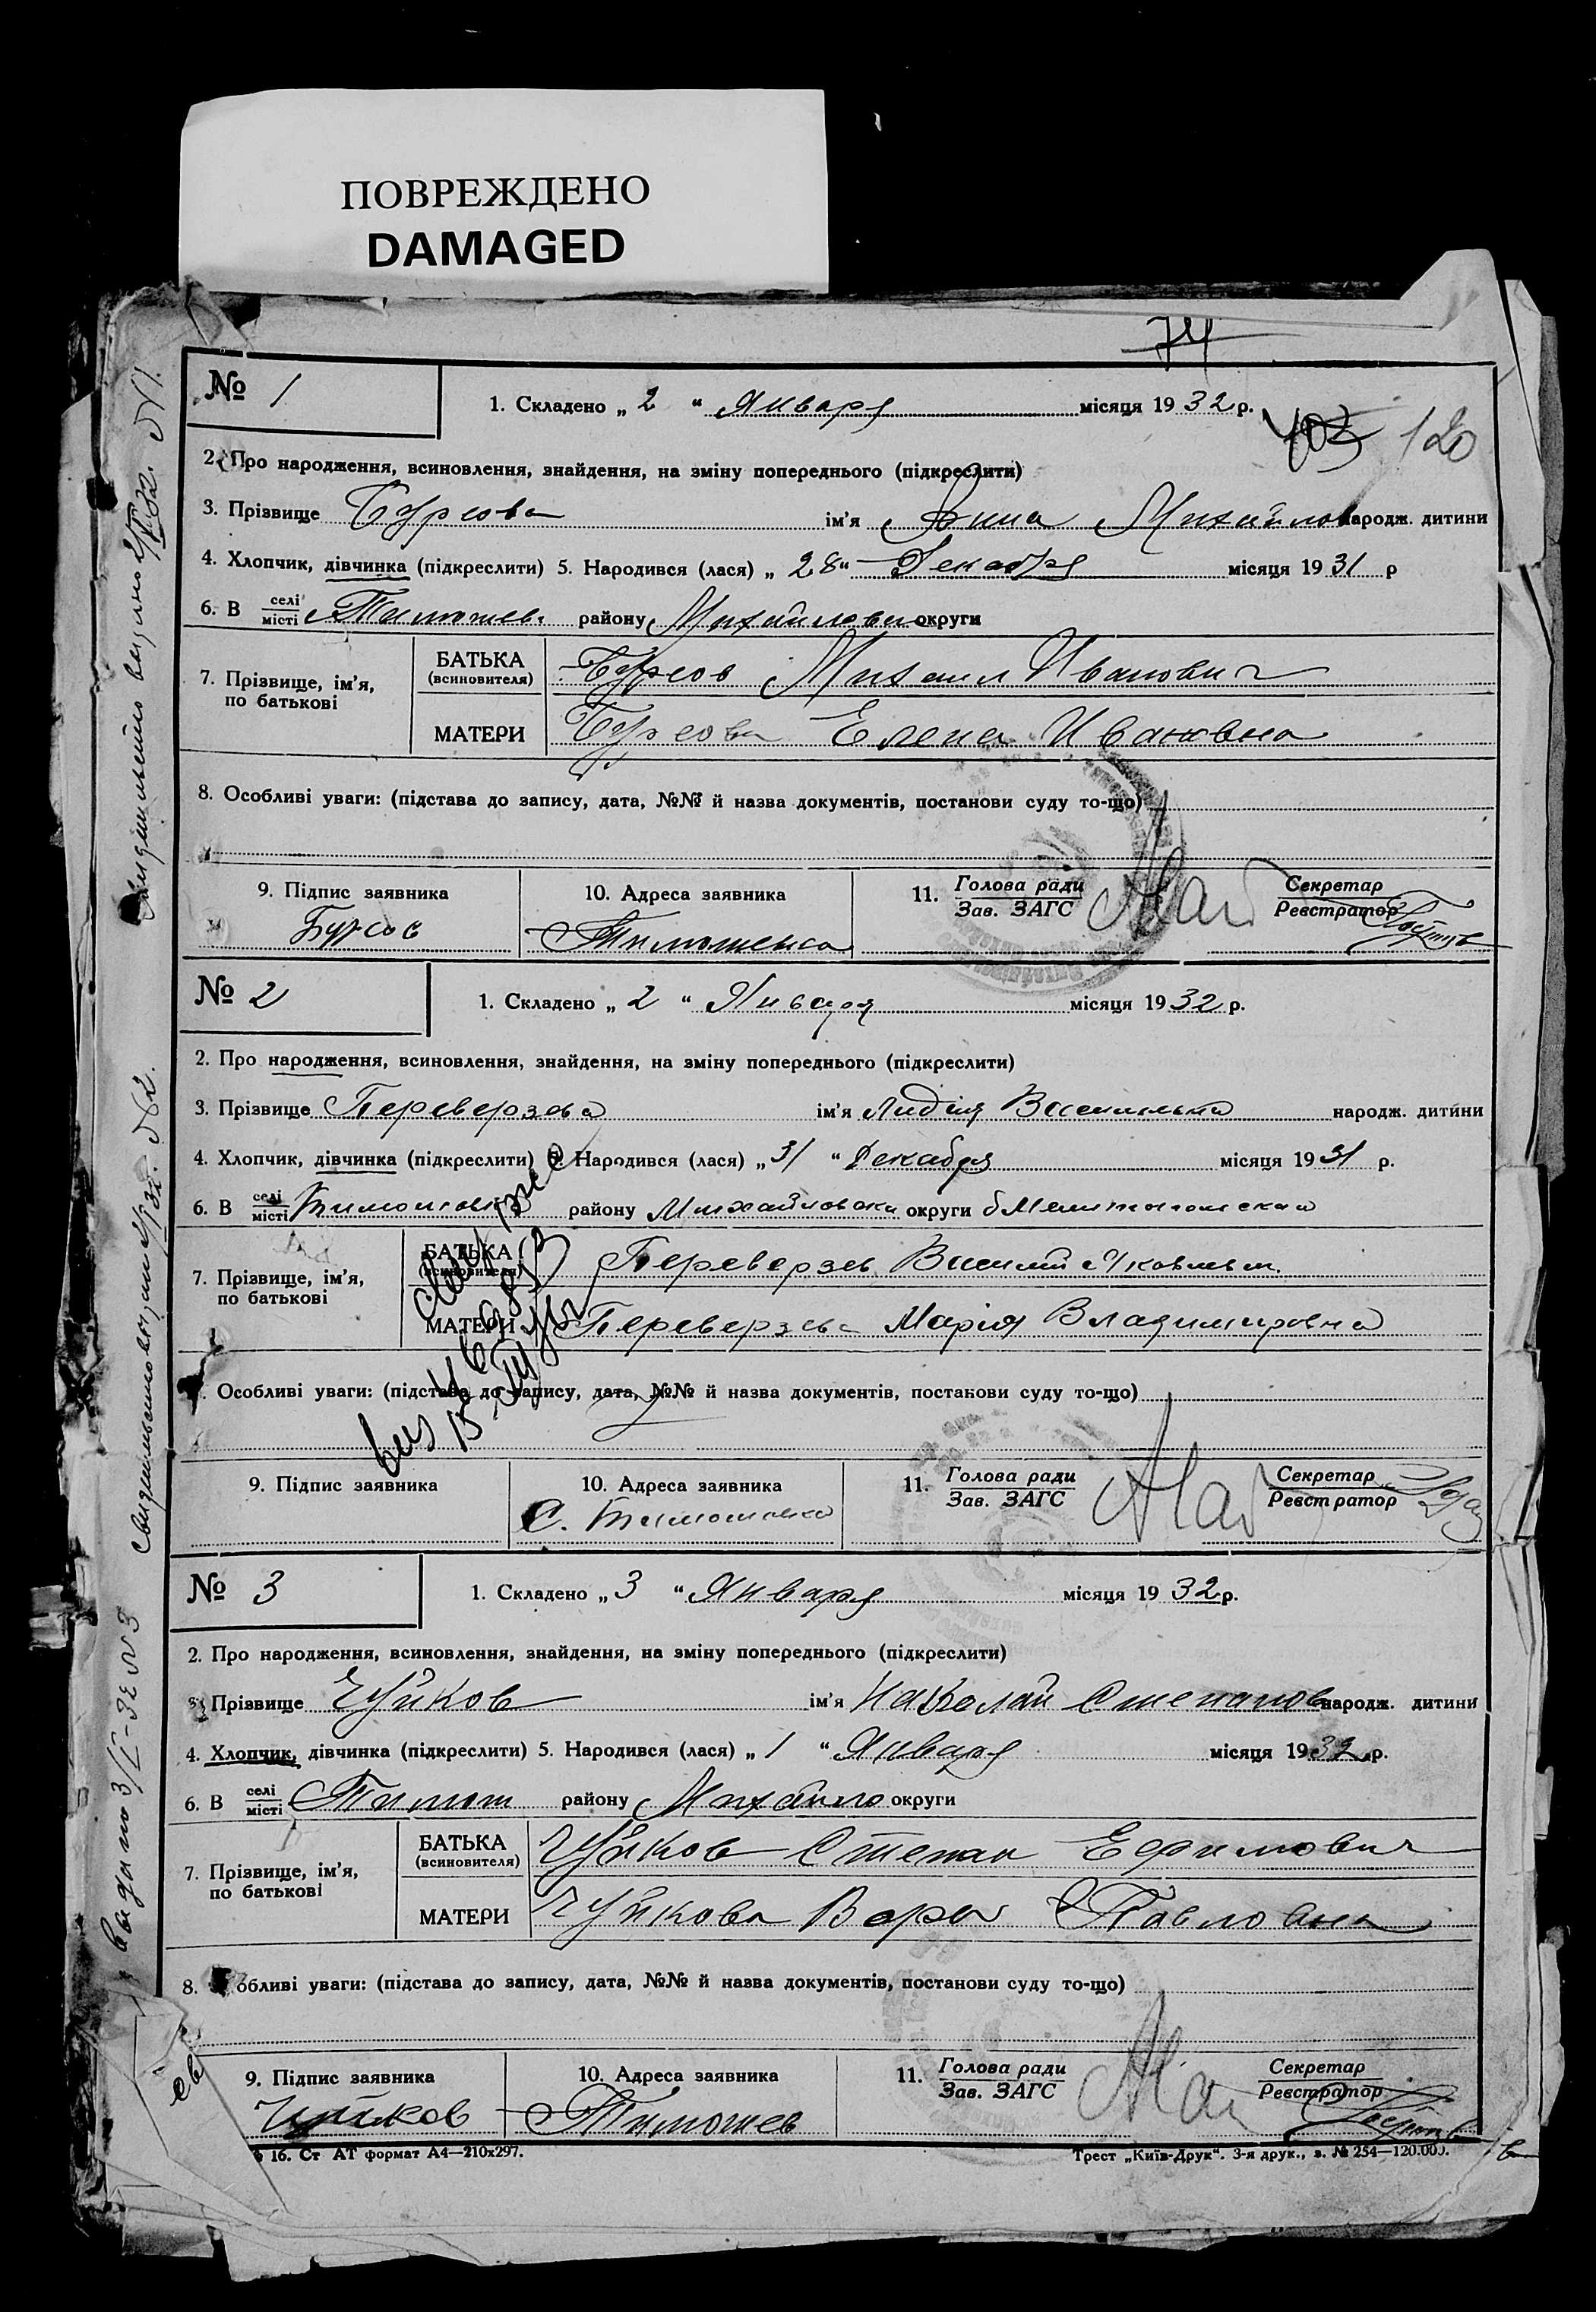 ПОВРЕЖДЕНО
DAMAGED
74
№ 1
1. Складено „ 2 “ Января місяця 1932 р.
103 120
2. Про народження, всиновлення, знайдення, на зміну попереднього (підкреслити)
3. Прізвище Бурсова ім'я Михайлов народж. дитини
4. Хлопчик, дівчинка (підкреслити) 5. Народився (лася) „ 28 “ Декабря місяця 1931 р
6. В селі/місті Тимошев. району Михайловск округи
7. Прізвище, ім'я, по батькові
БАТЬКА (всиновителя) Бурсов Михаил Иванович
МАТЕРИ Бурсова Елена Ивановна
8. Особливі уваги: (підстава до запису, дата, №№ й назва документів, постанови суду то-що)
9. Підпис заявника 10. Адреса заявника 11. Голова ради/Зав. ЗАГС Секретар/Реєстратор
Бурсов Тимошевка
№ 2
1. Складено „ 2 “ Января місяця 1932 р.
2. Про народження, всиновлення, знайдення, на зміну попереднього (підкреслити)
3. Прізвище Переверзева ім'я Лидия Васильевна народж. дитини
4. Хлопчик, дівчинка (підкреслити) 5. Народився (лася) „ 31 “ Декабря місяця 1931 р.
6. В селі/місті Тимошовка району Михайловски округи б Мелитопольский
7. Прізвище, ім'я, по батькові
БАТЬКА (всиновителя) Переверзев Василий Яковлевич
МАТЕРИ Переверзева Мария Владимировна
Особливі уваги: (підстава до запису, дата, №№ й назва документів, постанови суду то-що)
9. Підпис заявника 10. Адреса заявника 11. Голова ради/Зав. ЗАГС Секретар/Реєстратор
с. Тимошовка
№ 3
1. Складено „ 3 “ Января місяця 1932 р.
2. Про народження, всиновлення, знайдення, на зміну попереднього (підкреслити)
3. Прізвище Чуйков ім'я Николай Степанов народж. дитини
4. Хлопчик, дівчинка (підкреслити) 5. Народився (лася) „ 1 “ Января місяця 1932 р.
6. В селі/місті Тимош району Михайло округи
7. Прізвище, ім'я, по батькові
БАТЬКА (всиновителя) Чуйков Степан Ефимович
МАТЕРИ Чуйкова Вера Павловна
8. обливі уваги: (підстава до запису, дата, №№ й назва документів, постанови суду то-що)
9. Підпис заявника 10. Адреса заявника 11. Голова ради/Зав. ЗАГС Секретар/Реєстратор
Чуйков Тимошев
16. Ст АТ формат А4—210х297.
Трест „Київ-Друк“. 3-я друк., з. № 254—120.000.
Свидительство видано 2/I 32. №1.
Свидительство видано 2/I 32. №2.
видано 3/I-32 №3